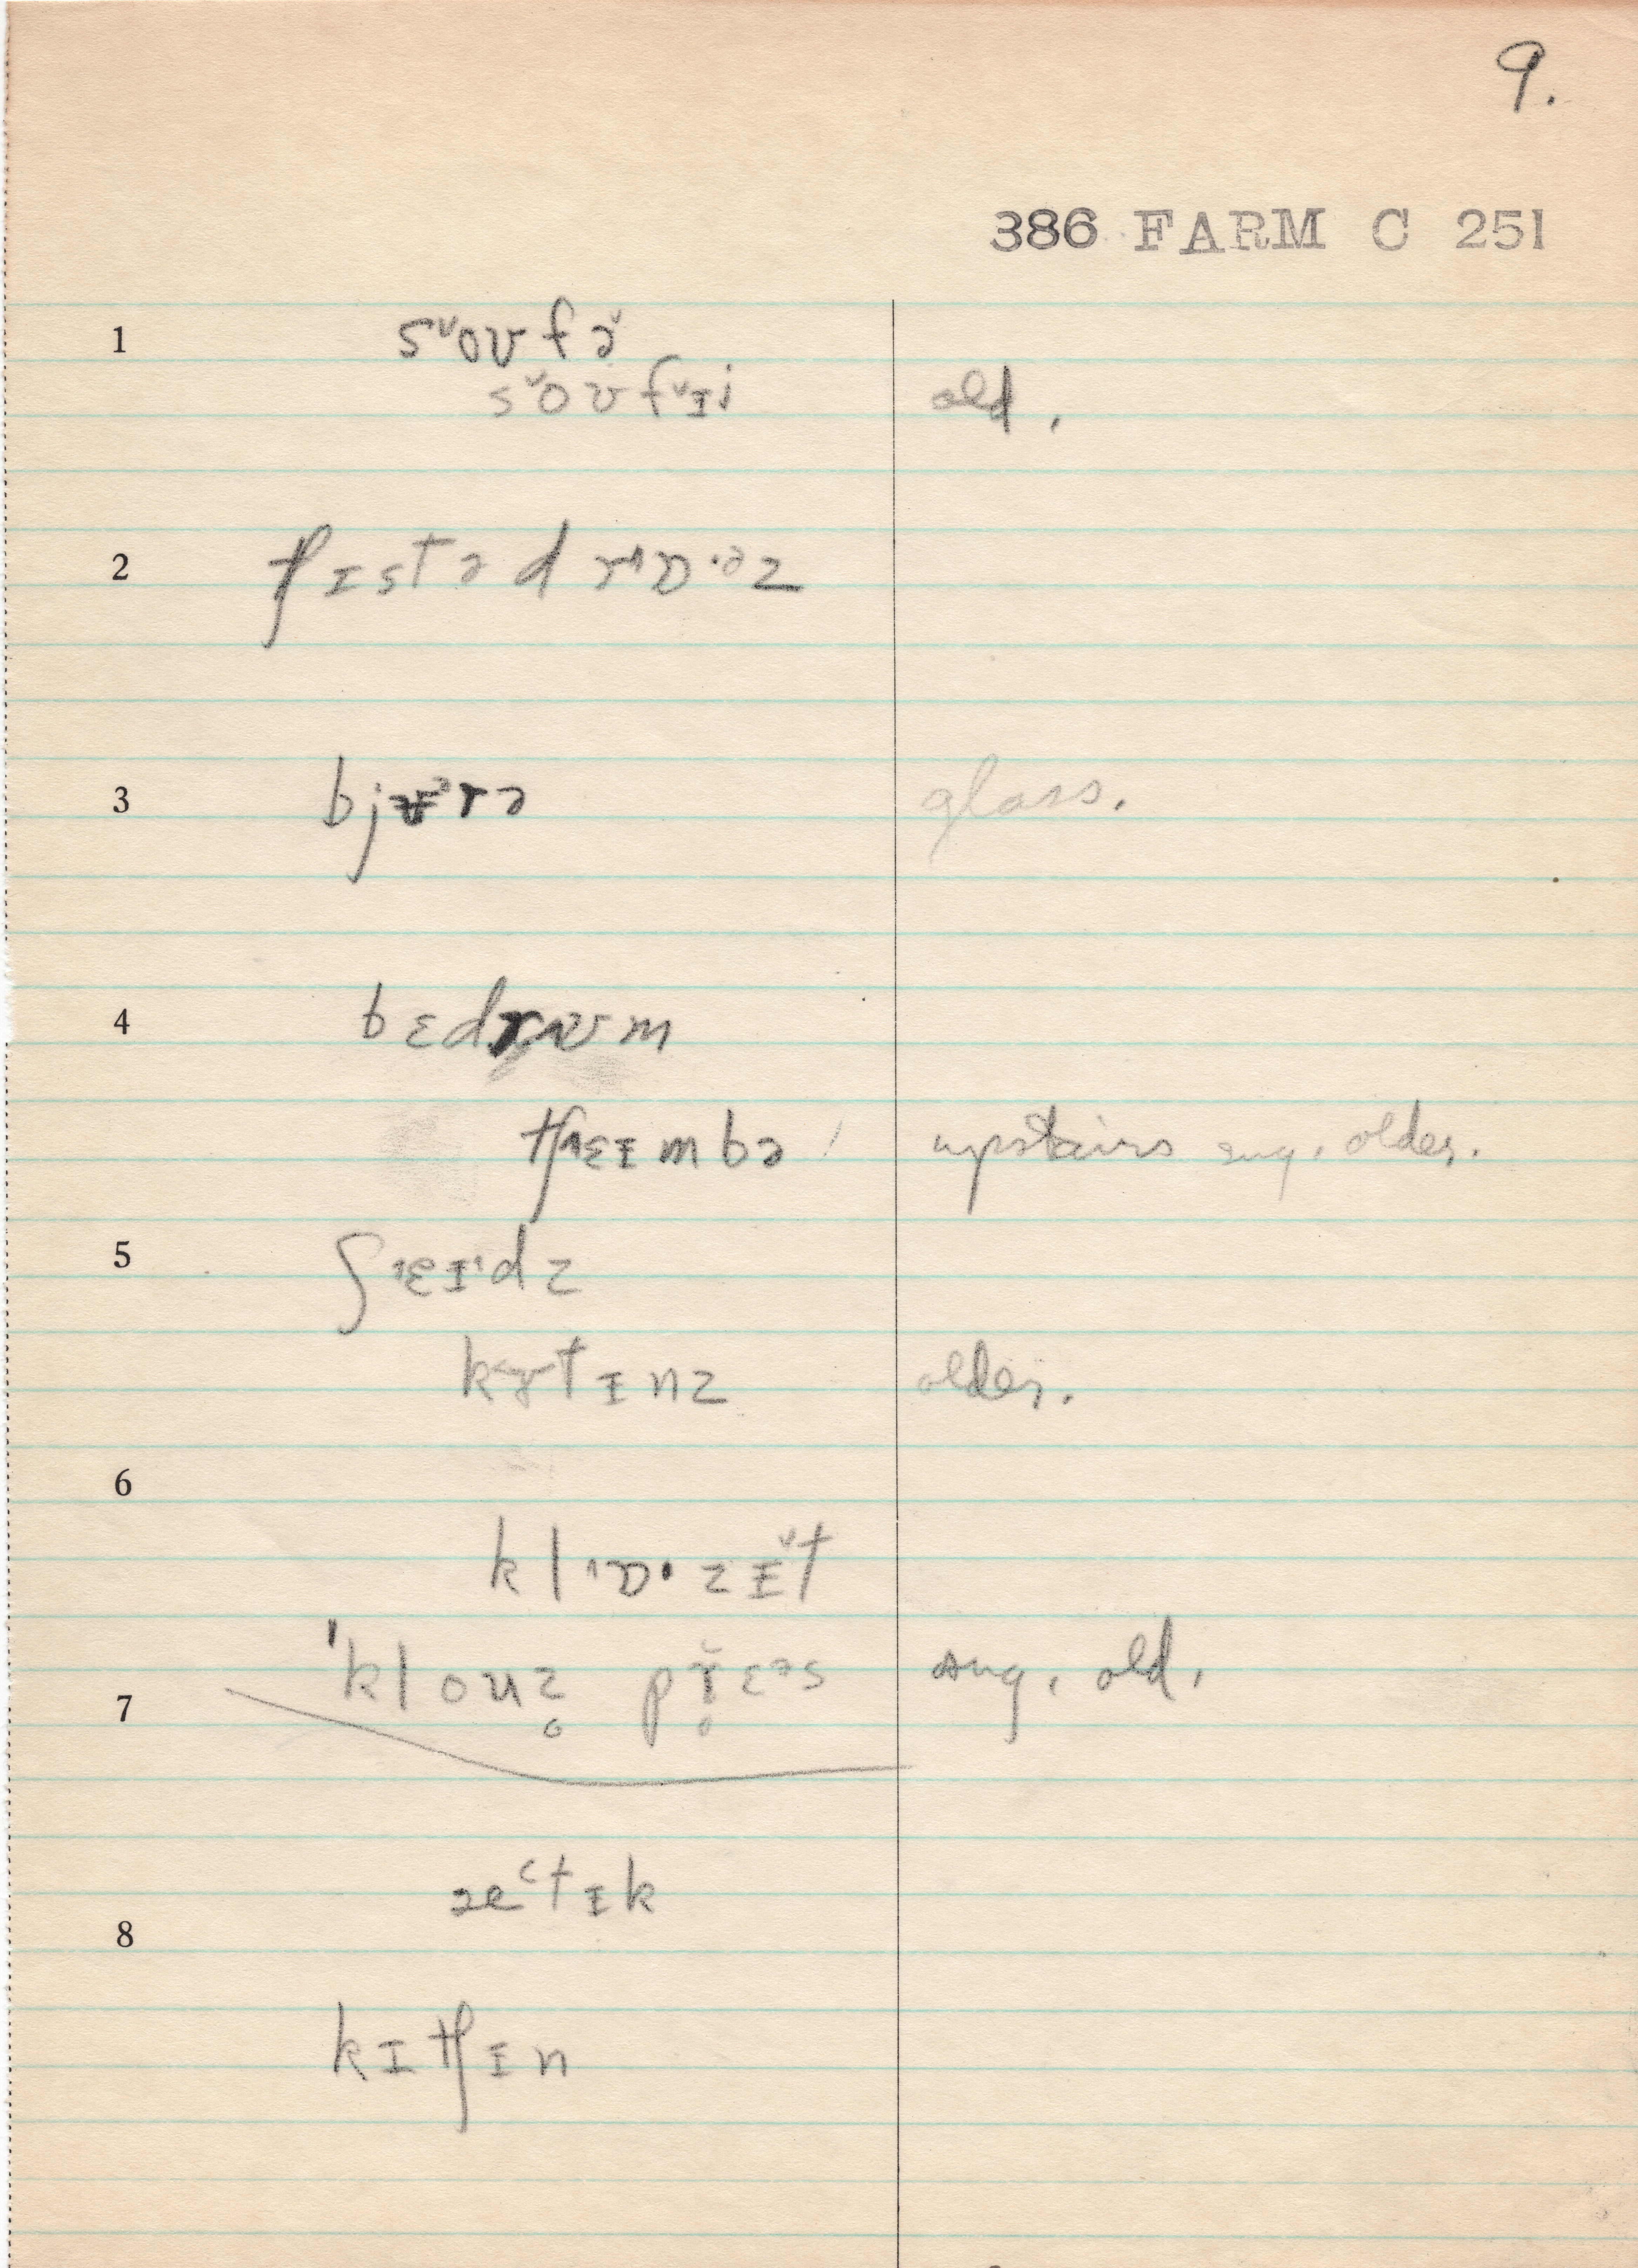 9.
386 FARM C 251
1 sˇoʊfəˇ
sˇoʊfˇɪi old.
2 tʃɪstə drˆɒ·ᵊz
3 bj rə glass.
4 bɛdrʌʊm
tʃˆɛɪmbə upstairs sug. older.
5 ʃˆɛɪˈdz
k tɪnz older.
6
klˆɒ·zɪˇt
7 ˈklouz̥ př̥ɛᵊs sug. old.
æ˂tɪk
8
kɪtʃɪn